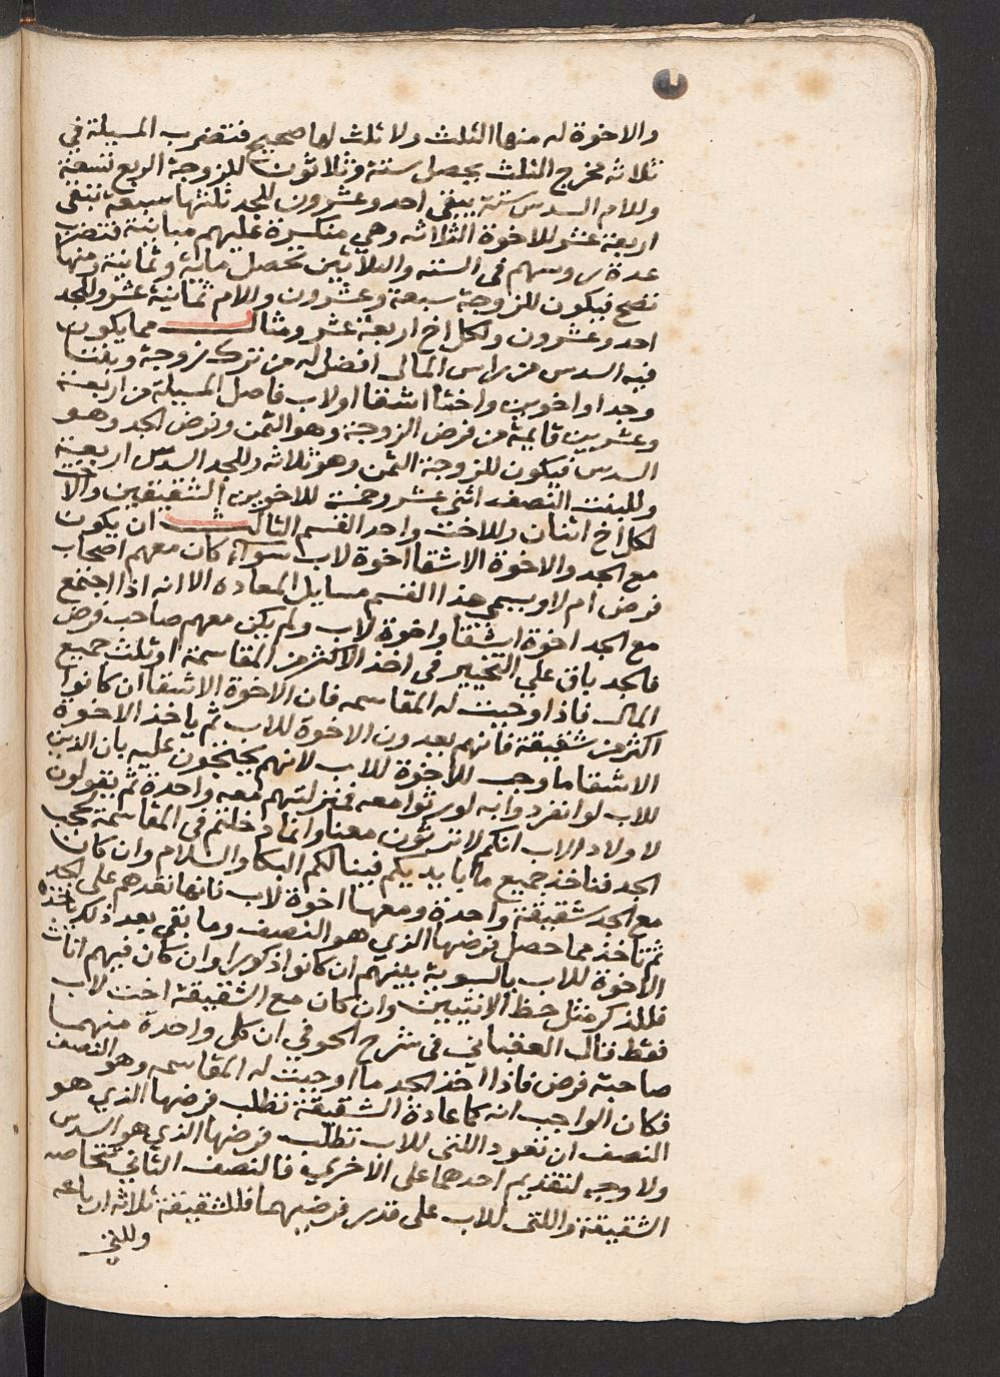 والاخوة له منها الثلث ولا ثلث لها صحيح فتضرب المسيلة في
ثلاثه مخرج الثلث يحصل ستة وثلاثون للزوجة الربع تسعة
وللام السدس ستة يبقى احد وعشرون للجد ثلثها سبعة تبقى
اربعة عشر للاخوة الثلاثه وهي منكسرة عليهم مباينة فتضرب
عدة روسهم في الستة والثلاثين تحصل ماية وثمانية ومنها
تصح فيكون للزوجة سبعة وعشرون وللام ثمانية عشر وللجد
احد وعشرون ولكل اخ اربعة عشر ومثال مما يكون
فيه السدس من راس المال افضل له من ترك زوجة وبنتا
وجدا واخوين واختا اشقا او لاب فاصل المسيلة من اربعة
وعشرين قايمة من فرض الزوجة وهو الثمن وفرض الجد وهو
السدس فيكون للزوجة الثمن وهو ثلاثه وللجد السدس اربعة
وللبنت النصف اثنى عشر وخمسة للاخوين الشقيقين والاخت
لكل اخ اثنان وللاخت واحد القسم الثالث ان يكون
مع الجد والاخوة الاشقا اخوة لاب سواء كان معهم اصحاب
فرض ام لا ويسمى هذا القسم مسايل المعاده الا انه اذا اجتمع
مع الجد اخوة اشقا واخوة لاب ولم يكن معهم صاحب فرض
فالجد باق على التخيير في اخذ الاكثر من المقاسمة او ثلث جميع
المال فاذا وجبت له المقاسمه فان الاخوة الاشقا ان كانوا
اكثر من شقيقة فانهم يعدون الاخوة للاب ثم ياخذ الاخوة
الاشقا ما وجب للاخوة للاب لانهم يحتجون عليه بان الذين
للاب لو انفردوا به لورثوا معه فمنزلتهم معه واحدة ثم يقولون
لاولاد الاب انكم لا ترثون معنا وانما دخلتم في المقاسمة بحجب
الجد فناخذ جميع ما بايديكم فينالكم البكا والسلام وان كان
مع الجد شقيقة واحدة ومعها اخوة لاب فانها تعدهم على الجد
ثم تاخذ مما حصل فرضها الذي هو النصف وما بقى بعد ذلك ياخذه
الاخوة للاب بالسوية بينهم ان كانوا ذكورا وان كان فيهم اناث
فللذكر مثل حظ الانثيين وان كان مع الشقيقة اخت لاب
فقط قال العقباني في شرح الحوفي ان كل واحدة منهما
صاحبة فرض فاذا اخذ الجد ما اوجبت له المقاسمه وهو النصف
فكان الواجب انه كما عادة الشقيقة تطلب فرضها الذي هو
النصف ان تعود اللتى للاب تطلب فرضها الذي هو السدس
ولا وجه لتقديم احدهما على الاخرى فالنصف الثاني تتحاصه
الشقيقة واللتى للاب على قدر فرضيهما فللشقيقة ثلاثه ارباعه
وللتي